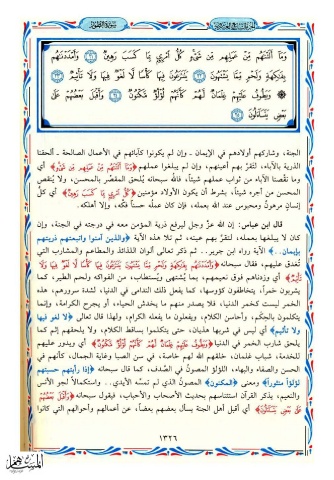 وَمَا أَلَتْنَاهُم مِّنْ عَمَلِهِم مِّن شَيْءٍ كُلُّ امْرِئٍ بِمَا كَسَبَ رَهِينٌ ٢١ وَأَمْدَدْنَاهُم
بِفَاكِهَةٍ وَلَحْمٍ مِّمَّا يَشْتَهُونَ ٢٢ يَتَنَازَعُونَ فِيهَا كَأْسًا لَّا لَغْوٌ فِيهَا وَلَا تَأْثِيمٌ ٢٣
۞ وَيَطُوفُ عَلَيْهِمْ غِلْمَانٌ لَّهُمْ كَأَنَّهُمْ لُؤْلُؤٌ مَّكْنُونٌ ٢٤ وَأَقْبَلَ بَعْضُهُمْ عَلَى
بَعْضٍ يَتَسَاءَلُونَ ٢٥
الجنة، وشاركهم أولادهم في الإيمان - وإن لم يكونوا كآبائهم في الأعمال الصالحة - ألحقنا
الذرية بالآباء، لتقرّ بهم أعينهم، وإن لم يبلغوا عملهم ﴿وَمَا أَلَتْنَاهُم مِّنْ عَمَلِهِم مِّن شَيْءٍ﴾ أي
وما نقصنا الآباء من ثواب عملهم شيئاً، فالله سبحانه يُلحق المقصّر بالمحسن، ولا يُنقص
المحسن من أجره شيئاً، بشرط أن يكون الأولاد مؤمنين ﴿كُلُّ امْرِئٍ بِمَا كَسَبَ رَهِينٌ﴾ أي كلُّ
إنسانٍ مرهونٌ ومحبوس عند الله بعمله، فإن كان عمله حسناً فكّه، وإلا أهلكه.
قال ابن عباس: إن الله عزَّ وجل ليرفع ذرية المؤمن معه في درجته في الجنة، وإن
كان لا يبلغها بعمله، لتقرّ بهم عينه، ثم تلا هذه الآية ﴿والذين آمنوا واتبعتهم ذريتهم
بإيمان..﴾ الآية رواه ابن جرير.. ثم ذكر تعالى ألوان اللذائذ والمطاعم والمشارب التي
تُغدق عليهم، فقال سبحانه ﴿وَأَمْدَدْنَاهُم بِفَاكِهَةٍ وَلَحْمٍ مِّمَّا يَشْتَهُونَ يَتَنَازَعُونَ فِيهَا كَأْسًا لَّا لَغْوٌ فِيهَا وَلَا
تَأْثِيمٌ﴾ أي وزدناهم فوق نعيمهم، بما يُشتهى ويُستطاب، من الفواكه ولحم الطير، كما
يشربون خمراً، يتخاطفون كؤوسها، كما يفعل ذلك الندامى في الدنيا، لشدة سرورهم، هذه
الخمر ليست كخمر الدنيا، فلا يصدر منهم ما يخدش الحياء، أو يجرح الكرامة، وإنما
يتكلمون بالحِكَم، وأحاسن الكلام، ويفعلون ما يفعله الكرام، ولهذا قال تعالى ﴿لا لغو فيها
ولا تأثيم﴾ أي ليس في شربها هذيان، حتى يتكلموا بساقط الكلام، ولا يلحقهم إثم كما
يلحق شارب الخمر في الدنيا ﴿وَيَطُوفُ عَلَيْهِمْ غِلْمَانٌ لَّهُمْ كَأَنَّهُمْ لُؤْلُؤٌ مَّكْنُونٌ﴾ أي ويدور عليهم
للخدمة، شباب غلمان، خلقهم الله لهم خاصة، في سن الصبا وغاية الجمال، كأنهم في
الحسن والصفاء والبهاء، اللؤلؤ المصونُ في الصَّدف، كما قال سبحانه ﴿إذا رأيتهم حسبتهم
لؤلؤاً منثوراً﴾ ومعنى ﴿المكنون﴾ المصونُ الذي لم تمسَّه الأيدي.. واستكمالاً لجو الأنس
والنعيم، يذكر القرآن استئناسهم بحديث الأصحاب والأحباب، فيقول سبحانه ﴿وَأَقْبَلَ بَعْضُهُمْ
عَلَى بَعْضٍ يَتَسَاءَلُونَ﴾ أي أقبل أهل الجنة يسأل بعضهم بعضاً، عن أعمالهم وأحوالهم التي كانوا
١٣٢٦